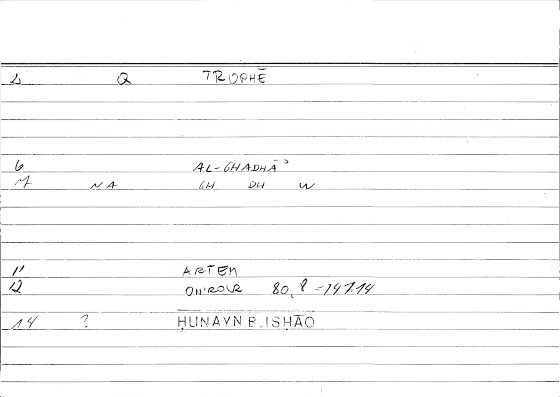 1 Q TROPHĒ
6 AL-GHADHĀʾ
7 NA GH DH W
11 ARTEM
12 ONIROCR 80,8 = 147.14
14 ? ḤUNAYN B. ISḤĀQ